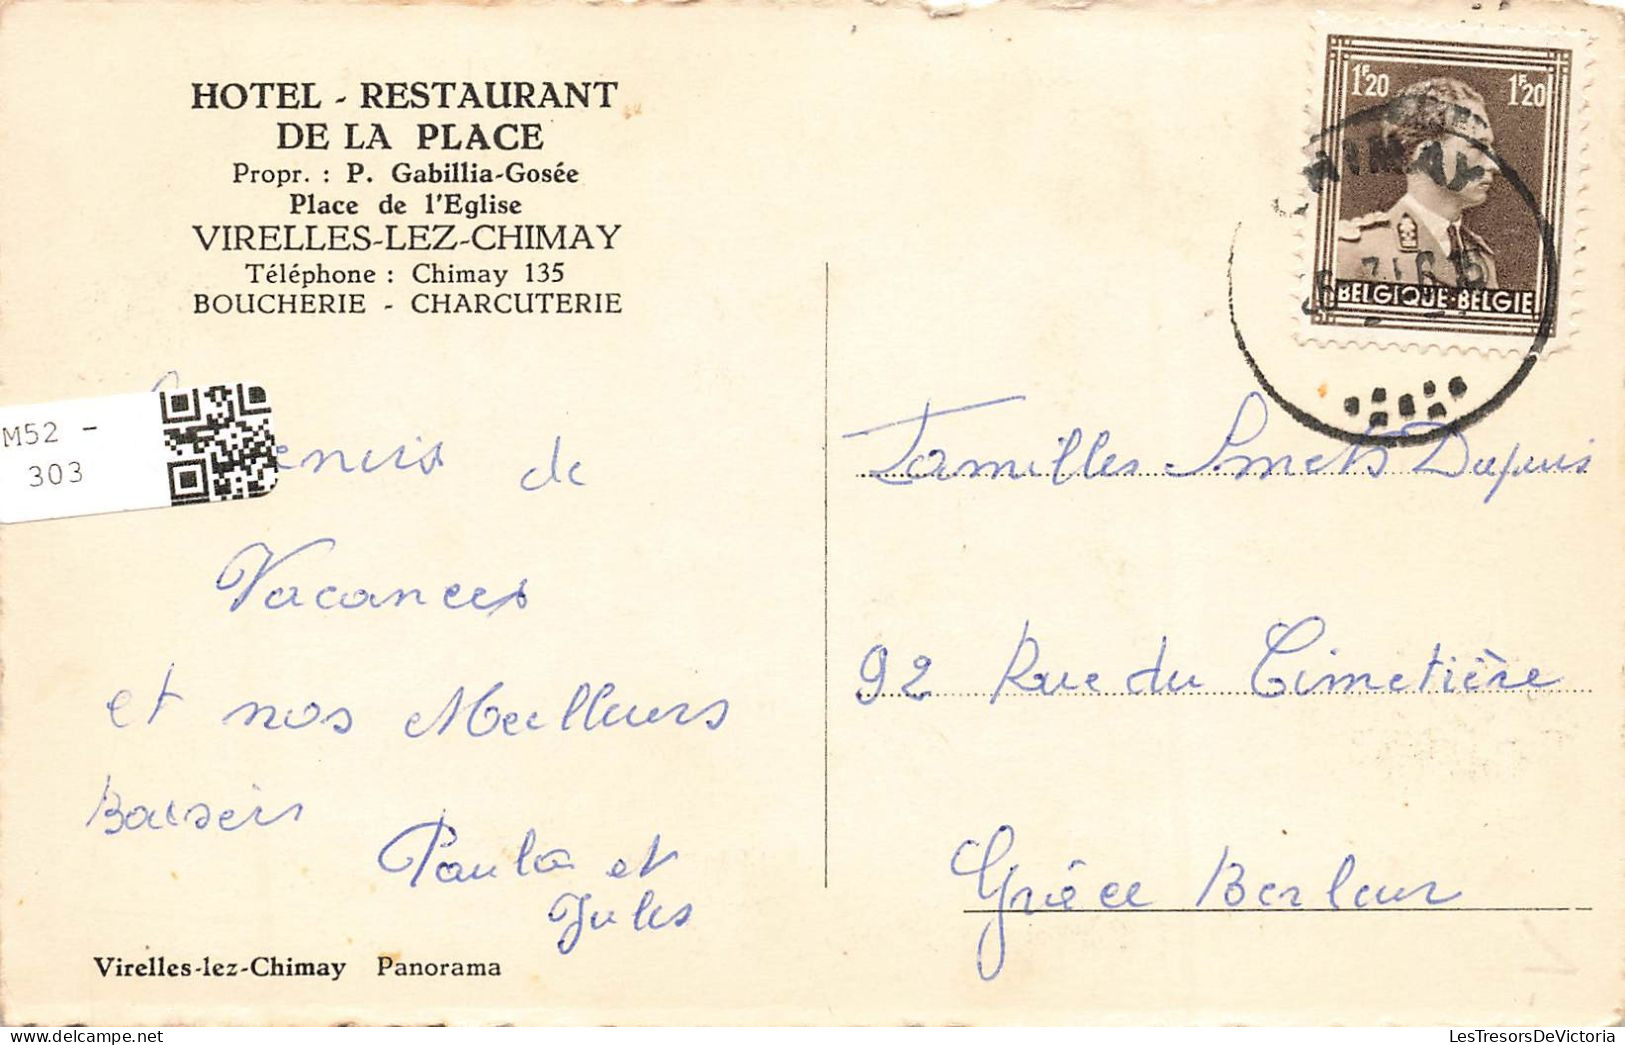 HOTEL - RESTAURANT
DE LA PLACE
Propr. : P. Gabillia-Gosée
Place de l'Eglise
VIRELLES-LEZ-CHIMAY
Téléphone : Chimay 135
BOUCHERIE - CHARCUTERIE
1F20 1F20
CHIMAY
BELGIQUE-BELGIE
M52 -
303
de
Vacances
et nos Meilleurs
Baisers
Paula et
Jules
Familles Smets Dupuis
92 Rue du Cimetière
Grâce Berleur
Virelles-lez-Chimay Panorama
LesTresorsDeVictoria